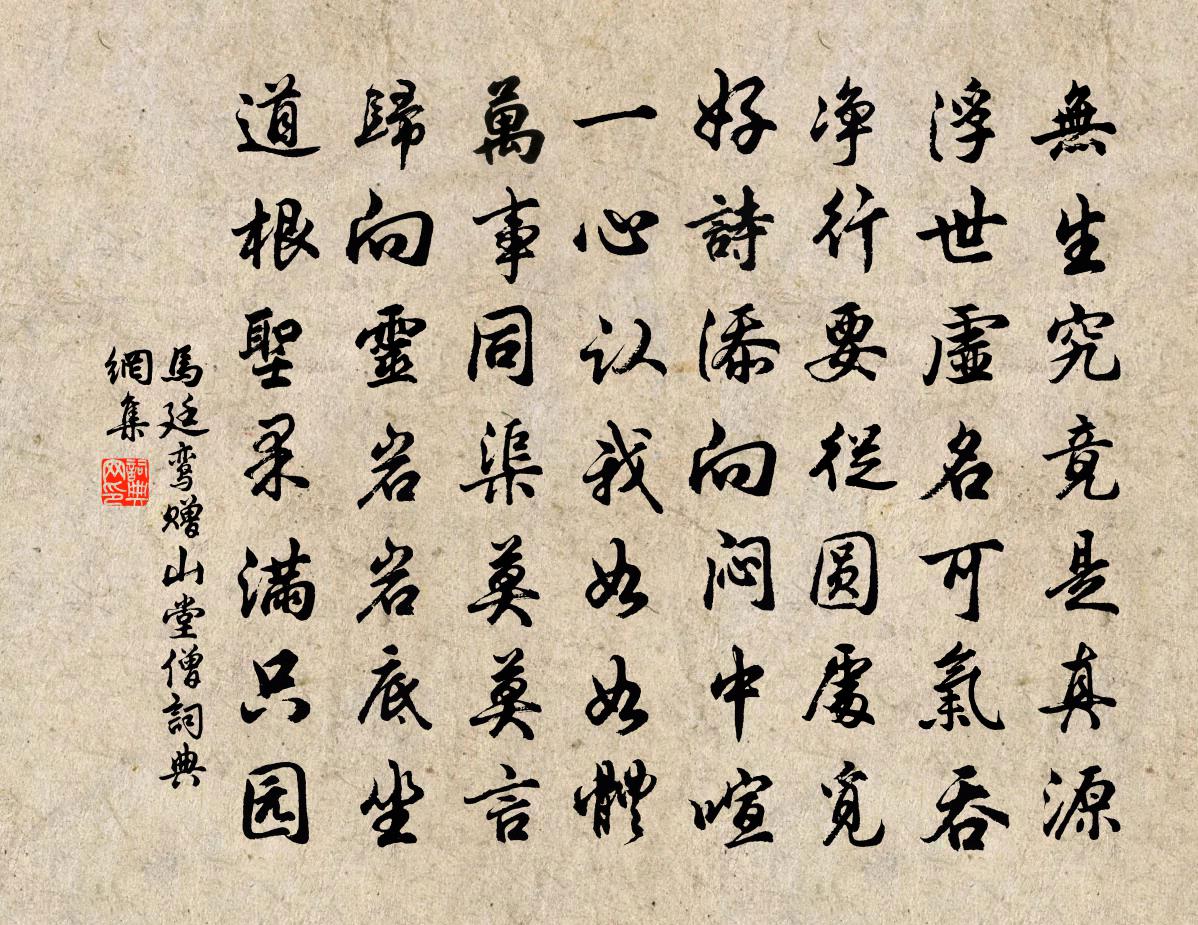 無生究竟是真源
浮世虛名可氣吞
净行要從圆處覓
好詩添向悶中喧
一心认我如如體
萬事同渠莫莫言
歸向靈岩岩底坐
道根聖果满只园
馬廷鸾赠山堂僧詞典
網集
詞典
网印